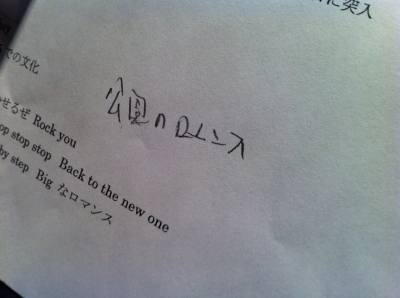 に突入
での文化
公園のロマンス
せるぜ Rock you
op stop stop Back to the new one
by step Big なロマンス